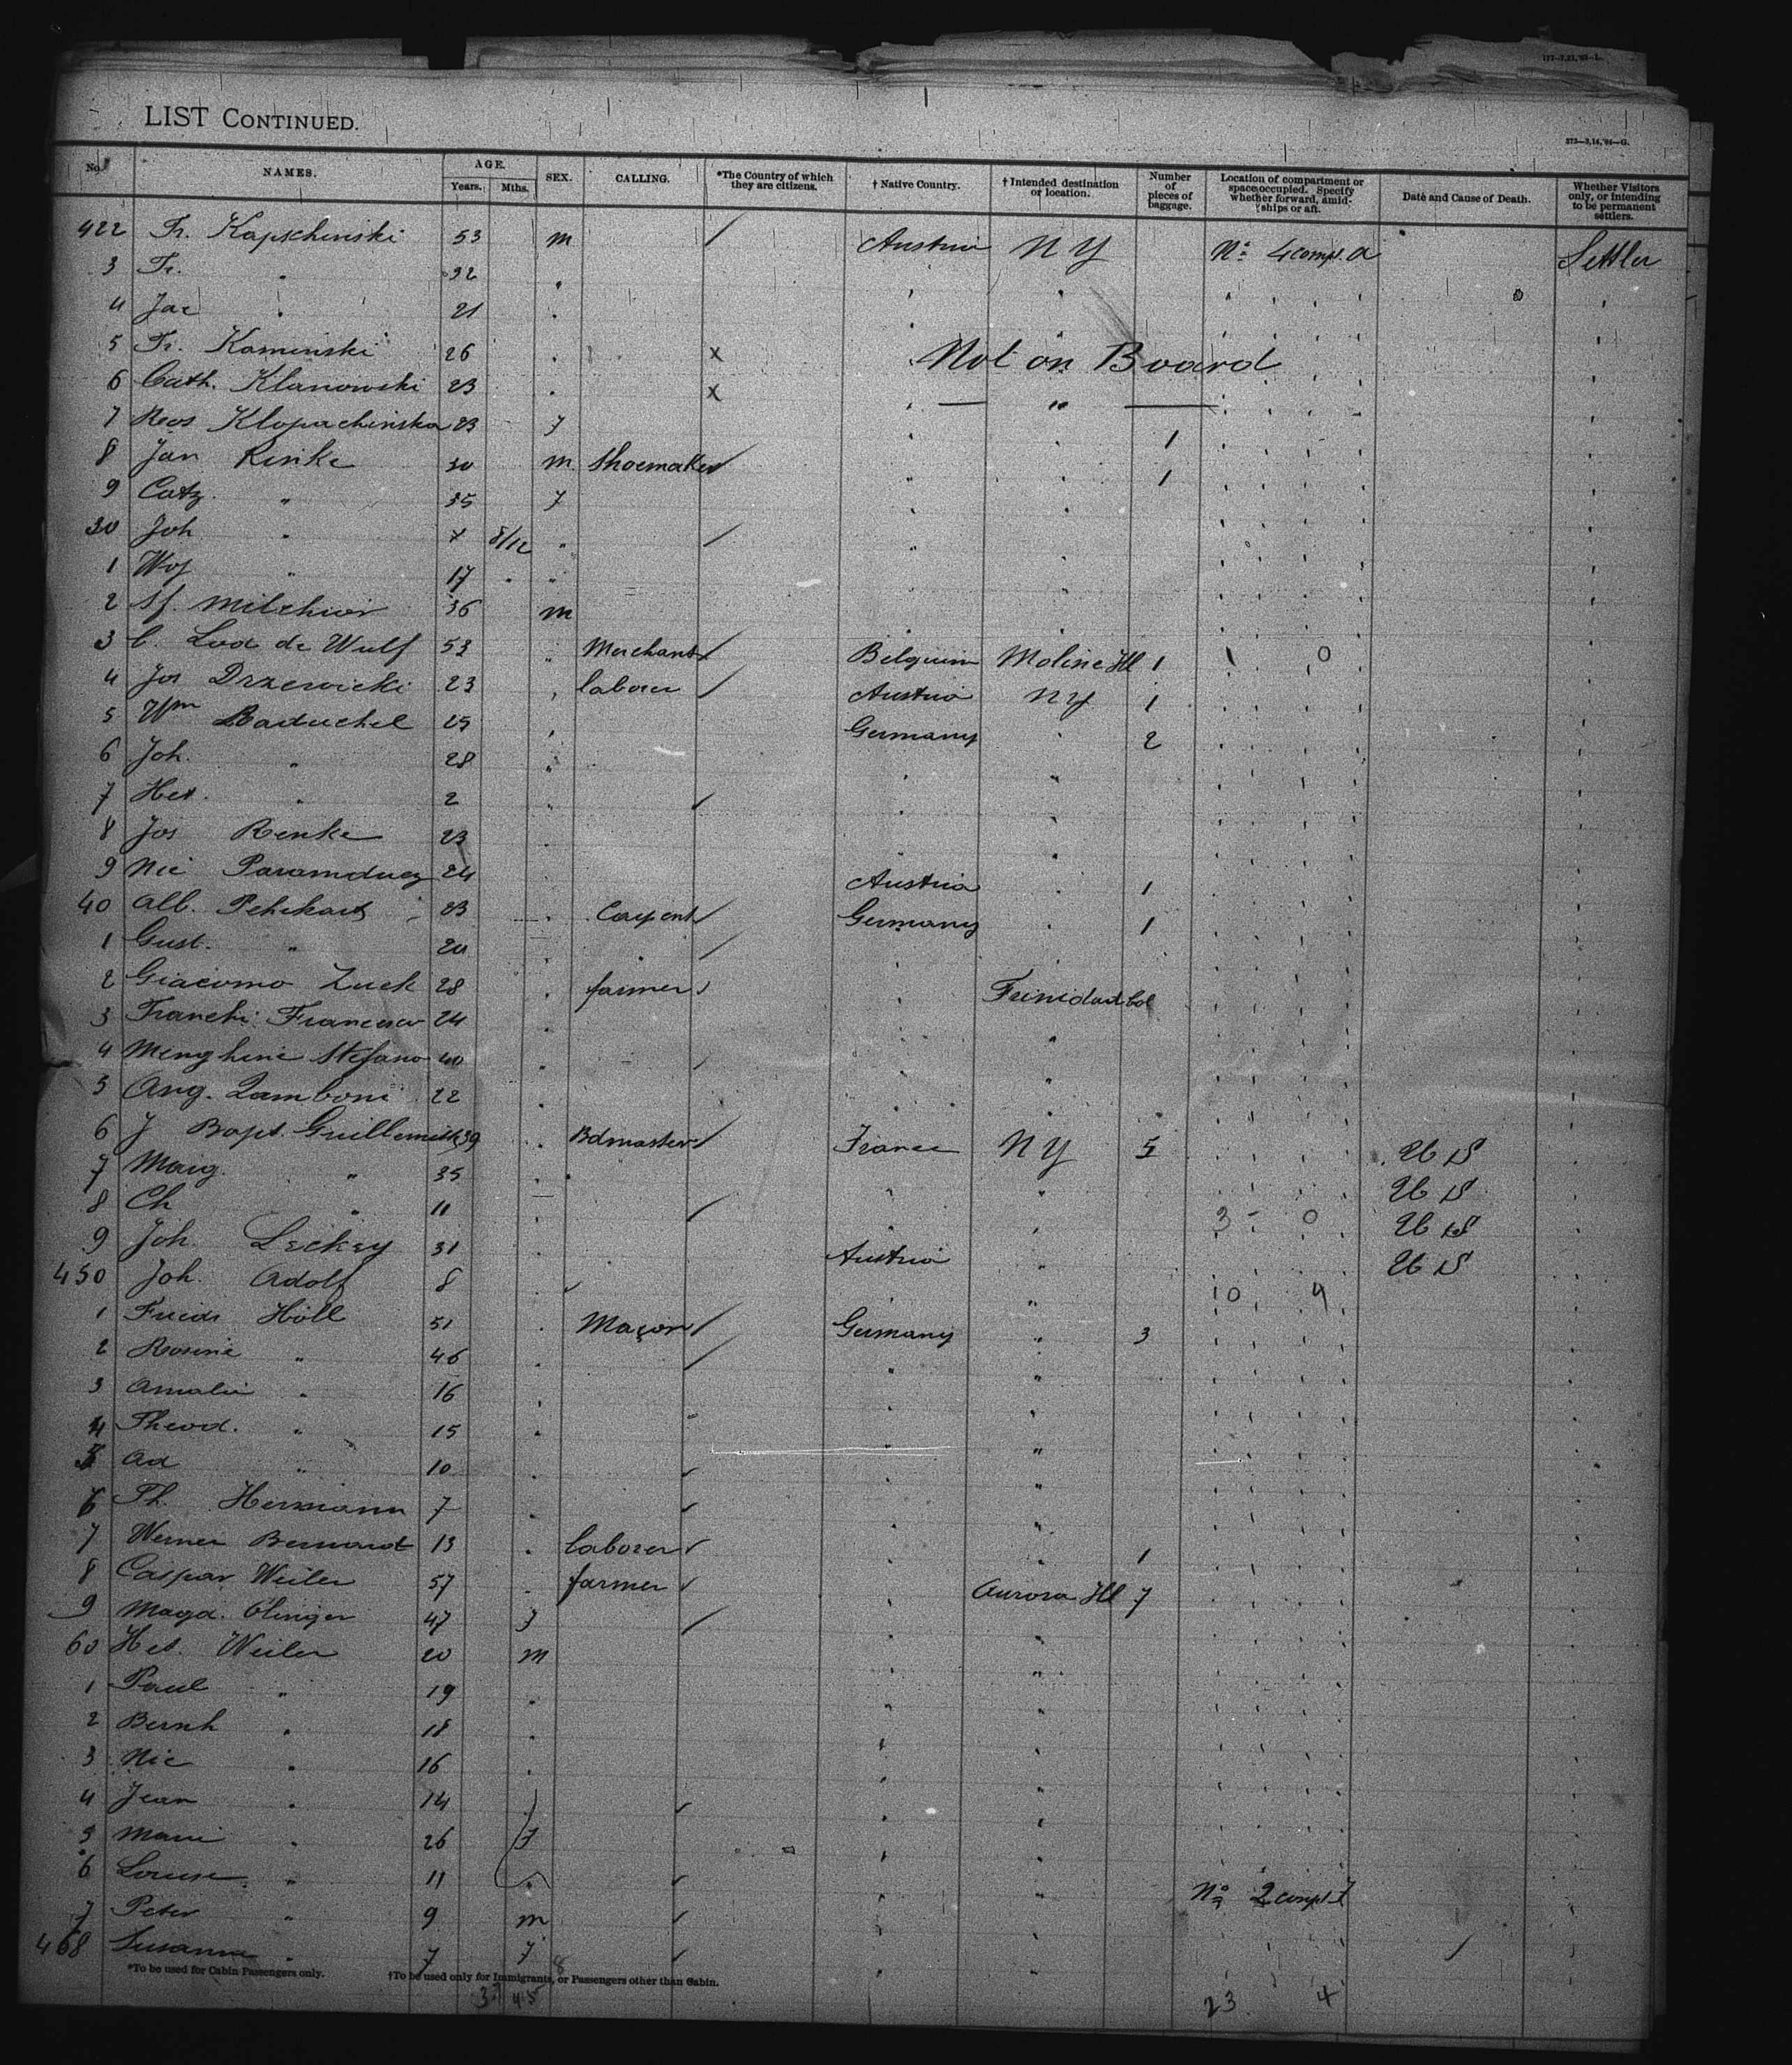 177—7,21,'93—L.
LIST CONTINUED.
373—3,14,'94—G.
No. NAMES. AGE. Years. Mths. SEX. CALLING. *The Country of which they are citizens. † Native Country. † Intended destination or location. Number of pieces of baggage. Location of compartment or space occupied. Specify whether forward, amidships or aft. Date and Cause of Death. Whether Visitors only, or intending to be permanent settlers.
422 Fr. Kapschinski 53 m / Austria N Y No 4 compt. a Settler
3 Fr. " 32 "
4 Jac " 21 "
5 Fr. Kaminski 26 " x Not on Board
6 Cath. Klanowski 23 " x — " —
7 Ros Klopachinska 23 f 1
8 Jan Rinke 30 m Shoemaker / 1
9 Catz. " 35 f
30 Joh " 8/12 " /
1 Woj " 17 " "
2 Sf. Milchior 36 m
3 C. Lod de Wulf 53 " Merchant / Belguim Moline Ill 1 0
4 Jos Drzewicki 23 " laborer / Austria N Y 1
5 Wm Raduchel 25 " Germany 2
6 Joh. " 28 "
7 Het. " 2 " /
8 Jos Renke 23 "
9 Nic 24 Austria 1
40 Alb. 23 " Carpent / Germany 1
1 Gust. " 20 " /
2 Giacomo Zuck 28 " farmer / Trinidad Col
3 Franchi Francesco 24 "
4 Menghini Stefano 40 " /
5 Ang. Zamboni 22 "
6 J Bapt. 39 " Bdmaster / France N Y 5 U S
7 Marg. " 35 " U S
8 Ch " 11 " / 3 - 0 U S
9 Joh. Leckey 31 " Austria " U S
450 Joh. Adolf 8 / " 10 4
1 Friedr Höll 51 " Maçon / Germany " 3
2 Rosine " 46 " / "
3 Amalie " 16 "
4 Theod. " 15 " "
5 Ad " 10 " / "
6 Th. Hermann 7 " /
7 Werner Bernard 13 " laborer / 1
8 Caspar Weiler 57 " farmer / Aurora Ill 7
9 Magd. Olinger 47 f / "
60 Het. Weiler 20 m "
1 Paul " 19 "
2 Bernh " 18 "
3 Nic " 16 "
4 Jean " 14 " / "
5 Marie " 26 f
6 Louise " 11 " / No 2 compt
7 Peter " 9 m /
468 Susanna " 7 f / /
*To be used for Cabin Passengers only. †To be used only for Immigrants, or Passengers other than Cabin.
8
37 45 23 4